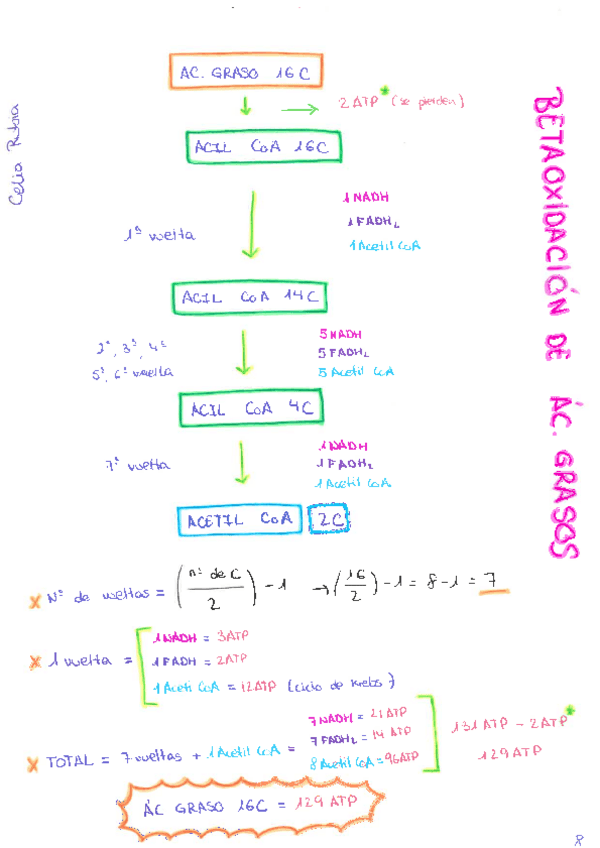 AC. GRASO 16C
2 ATP* (se pierden)
ACIL CoA 16C
1ª vuelta
1 NADH
1 FADH₂
1 Acetil CoA
ACIL CoA 14C
2ª, 3ª, 4ª
5ª, 6ª vuelta
5 NADH
5 FADH₂
5 Acetil CoA
ACIL CoA 4C
7ª vuelta
1 NADH
1 FADH₂
1 Acetil CoA
ACETIL CoA 2C
BETAOXIDACIÓN DE ÁC. GRASOS
Celia
x Nº de vueltas = (nº de C / 2) - 1 → (16 / 2) - 1 = 8 - 1 = 7
x 1 vuelta =
1 NADH = 3ATP
1 FADH = 2ATP
1 Acetil CoA = 12ATP (ciclo de Krebs)
x TOTAL = 7 vueltas + 1 Acetil CoA =
7 NADH = 21 ATP
7 FADH₂ = 14 ATP
8 Acetil CoA = 96 ATP
131 ATP - 2 ATP*
129 ATP
ÁC GRASO 16C = 129 ATP
8